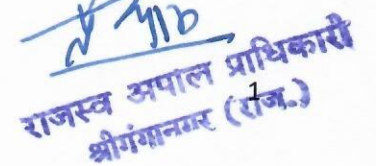 राजस्व अपील प्राधिकारी
1
श्रीगंगानगर (राज.)